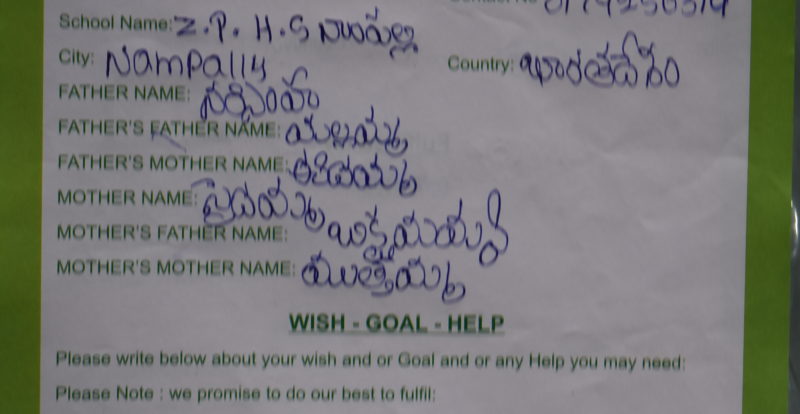 School Name: Z.P.H.S
City: Nampally Country: భారతదేశం
FATHER NAME: నర్సింహ
FATHER'S FATHER NAME: యల్లయ్య
FATHER'S MOTHER NAME:
MOTHER NAME: సైదమ్మ
MOTHER'S FATHER NAME:
MOTHER'S MOTHER NAME: ముత్తమ్మ
WISH - GOAL - HELP
Please write below about your wish and or Goal and or any Help you may need:
Please Note : we promise to do our best to fulfil: